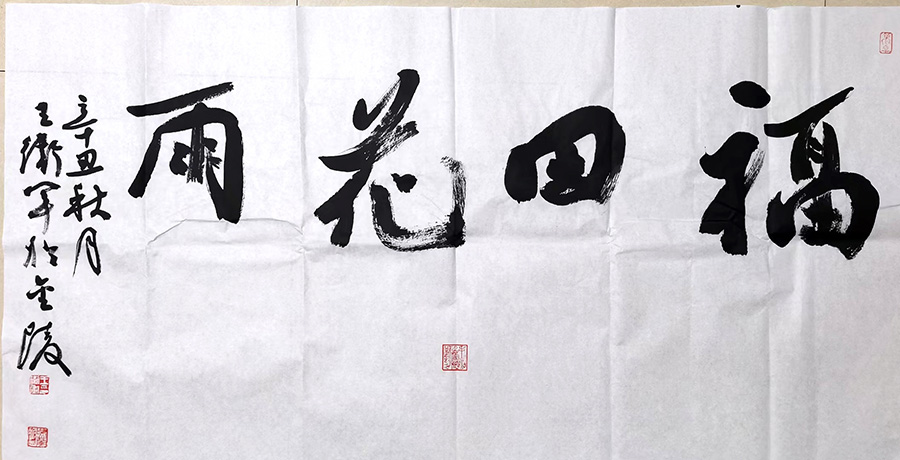 福田花雨
辛丑秋月
王卫军於金陵